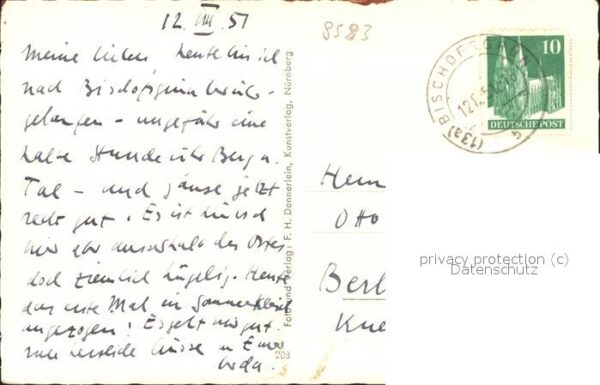 12. VIII. 51
8583
Meine Lieben, heute bin ich
nach Bischofsgrün
gelaufen – ungefähr eine
halbe Stunde über Berg u.
Tal – und jetzt
recht gut. Es ist hübsch
hier, aber ausserhalb des Ortes
doch ziemlich hügelig. Heute
das erste Mal im Sommerkleid
angezogen! Es geht mir gut.
Grüsse
Foto und Verlag: F. H. Dennerlein, Kunstverlag, Nürnberg
203
(13a) BISCHOFSGRÜN
10
DEUTSCHE POST
Otto
Berl
privacy protection (c)
Datenschutz